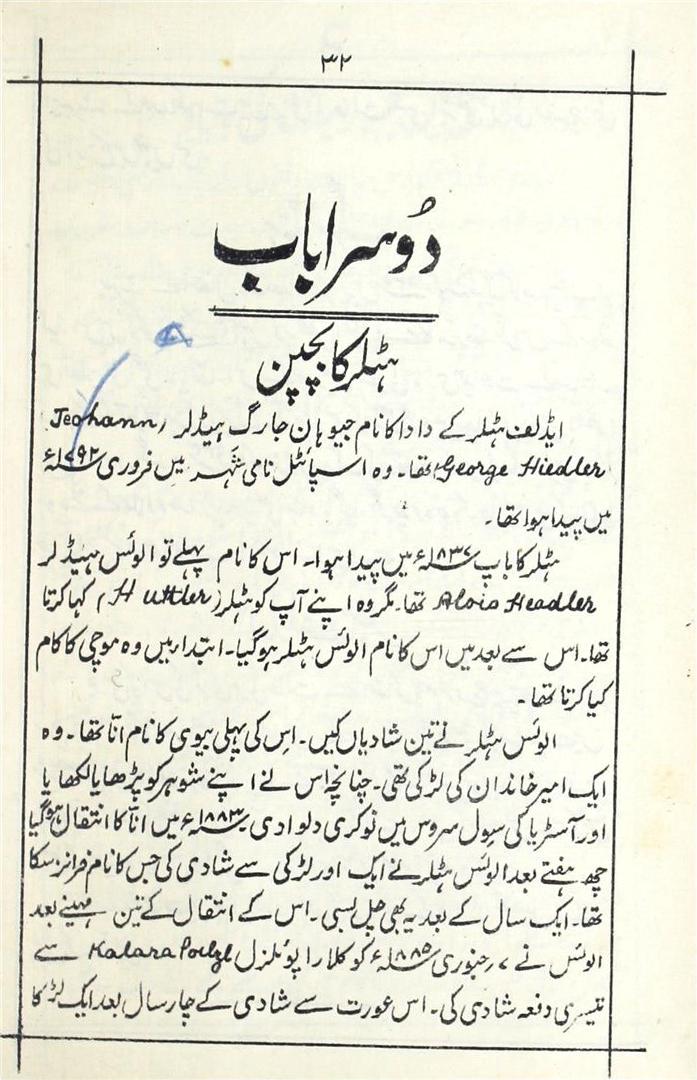 ۳۲
دُوسرا باب
ہٹلر کا بچپن
ایڈلف ہٹلر کے دادا کا نام جیوہان جارگ ہیڈلر (Jeohann
George Hiedler) تھا۔ وہ اسپائٹل نامی شہر میں فروری ۱۷۹۲ء
میں پیدا ہوا تھا۔
ہٹلر کا باپ ۱۸۳۷ء میں پیدا ہوا۔ اس کا نام پہلے تو الوئس ہیڈلر
Alois Headler تھا۔ مگر وہ اپنے آپ کو ہٹلر (Huttler) کہا کرتا
تھا۔ اس سے بعد میں اس کا نام الوئس ہٹلر ہو گیا۔ ابتدار میں وہ موچی کا کام
کیا کرتا تھا۔
الوئس ہٹلر نے تین شادیاں کیں۔ اس کی پہلی بیوی کا نام انّا تھا۔ وہ
ایک امیر خاندان کی لڑکی تھی۔ چنانچہ اس نے اپنے شوہر کو پڑھایا لکھا یا
اور آسٹریا کی سول سروس میں نوکری دلوا دی ۱۸۸۳ء میں انّا کا انتقال ہو گیا
چھ ہفتے بعد الوئس ہٹلر نے ایک اور لڑکی سے شادی کی جس کا نام فرانزسکا
تھا۔ ایک سال کے بعد یہ بھی چل بسی۔ اس کے انتقال کے تین مہینے بعد
الوئس نے ۷ جنوری ۱۸۸۵ء کو کلارا پوئلزل Kalara Poelzl سے
تیسری دفعہ شادی کی۔ اس عورت سے شادی کے چار سال بعد ایک لڑکا